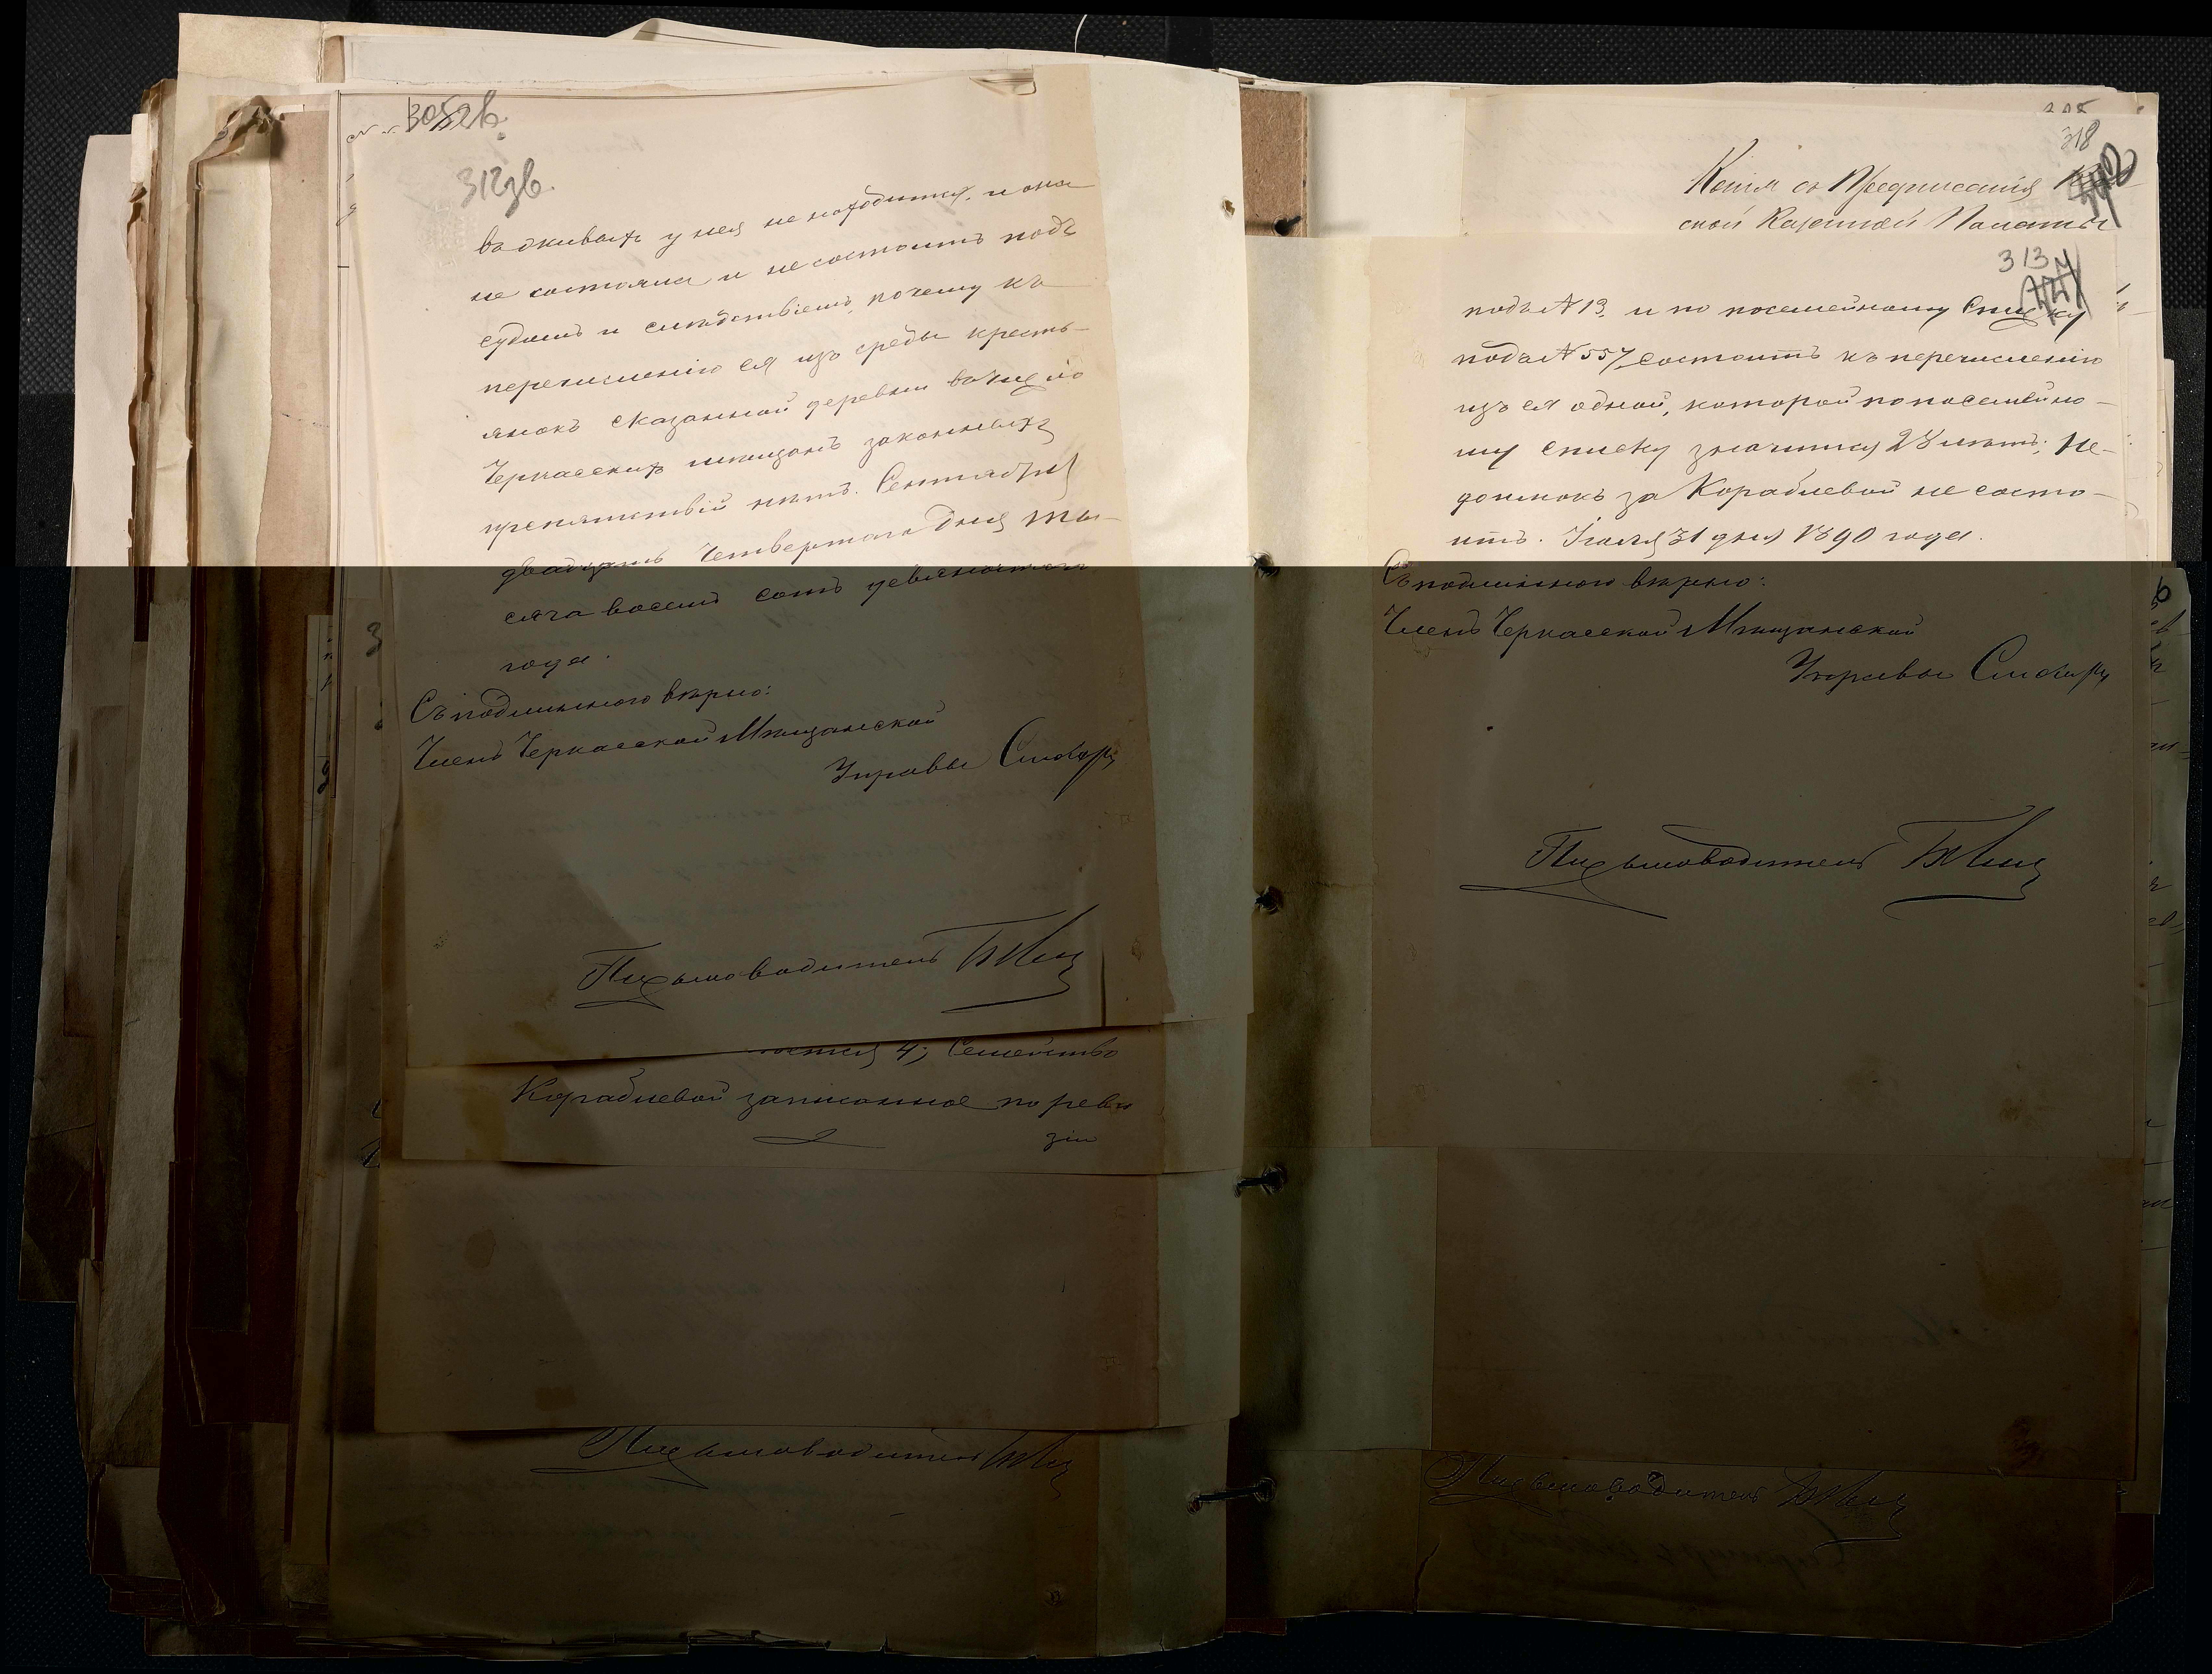 305 зв.
312 зв.
вдживахъ у нея не находится, и она
не состояла и не состоитъ подъ
судомъ и слѣдствіемъ, почему къ
перечисленію ея изъ среды кресть-
янокъ сказанной деревни въ число
Черкасскихъ мѣщанъ законныхъ
препятствій нѣтъ. Сентября
двадцать Четвертаго дня ты-
сяча восемь сотъ девяностаго
года.
Съ подлиннымъ вѣрно:
Членъ Черкасской Мѣщанской
Управы Слюсарь
Письмоводитель
4; Семейство
Кораблевой записанное по реви
зіи
Письмоводитель
318
Копія съ Предписанія
ской Казенной Палаты
313
подъ № 13, и по посемейному Списку
подъ № 557 состоитъ къ перечисленію
изъ ея одной, которой по посемейно-
му списку значится 28 лѣтъ; Не-
доимокъ за Кораблевой не состо-
итъ. Іюля 31 дня 1890 года.
Съ подлиннаго вѣрно:
Членъ Черкасской Мѣщанской
Управы Слюсарь
Письмоводитель
Письмоводитель